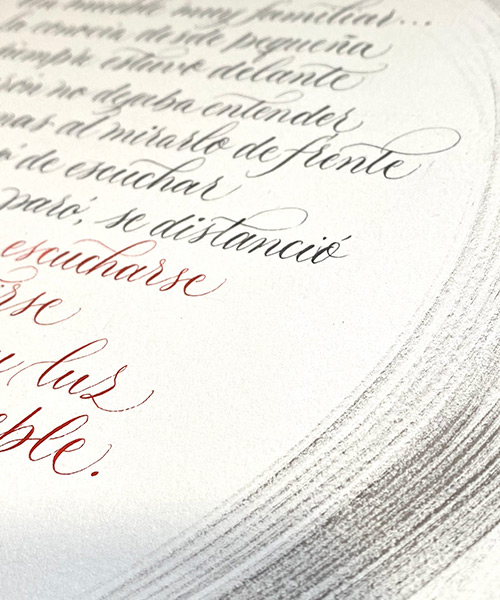 muy familiar...
la conocía desde pequeña
siempre estuvo delante
no dejaba entender
mas al mirarlo de frente
de escuchar
paró, se distanció
escucharse
irse
luz
ble.